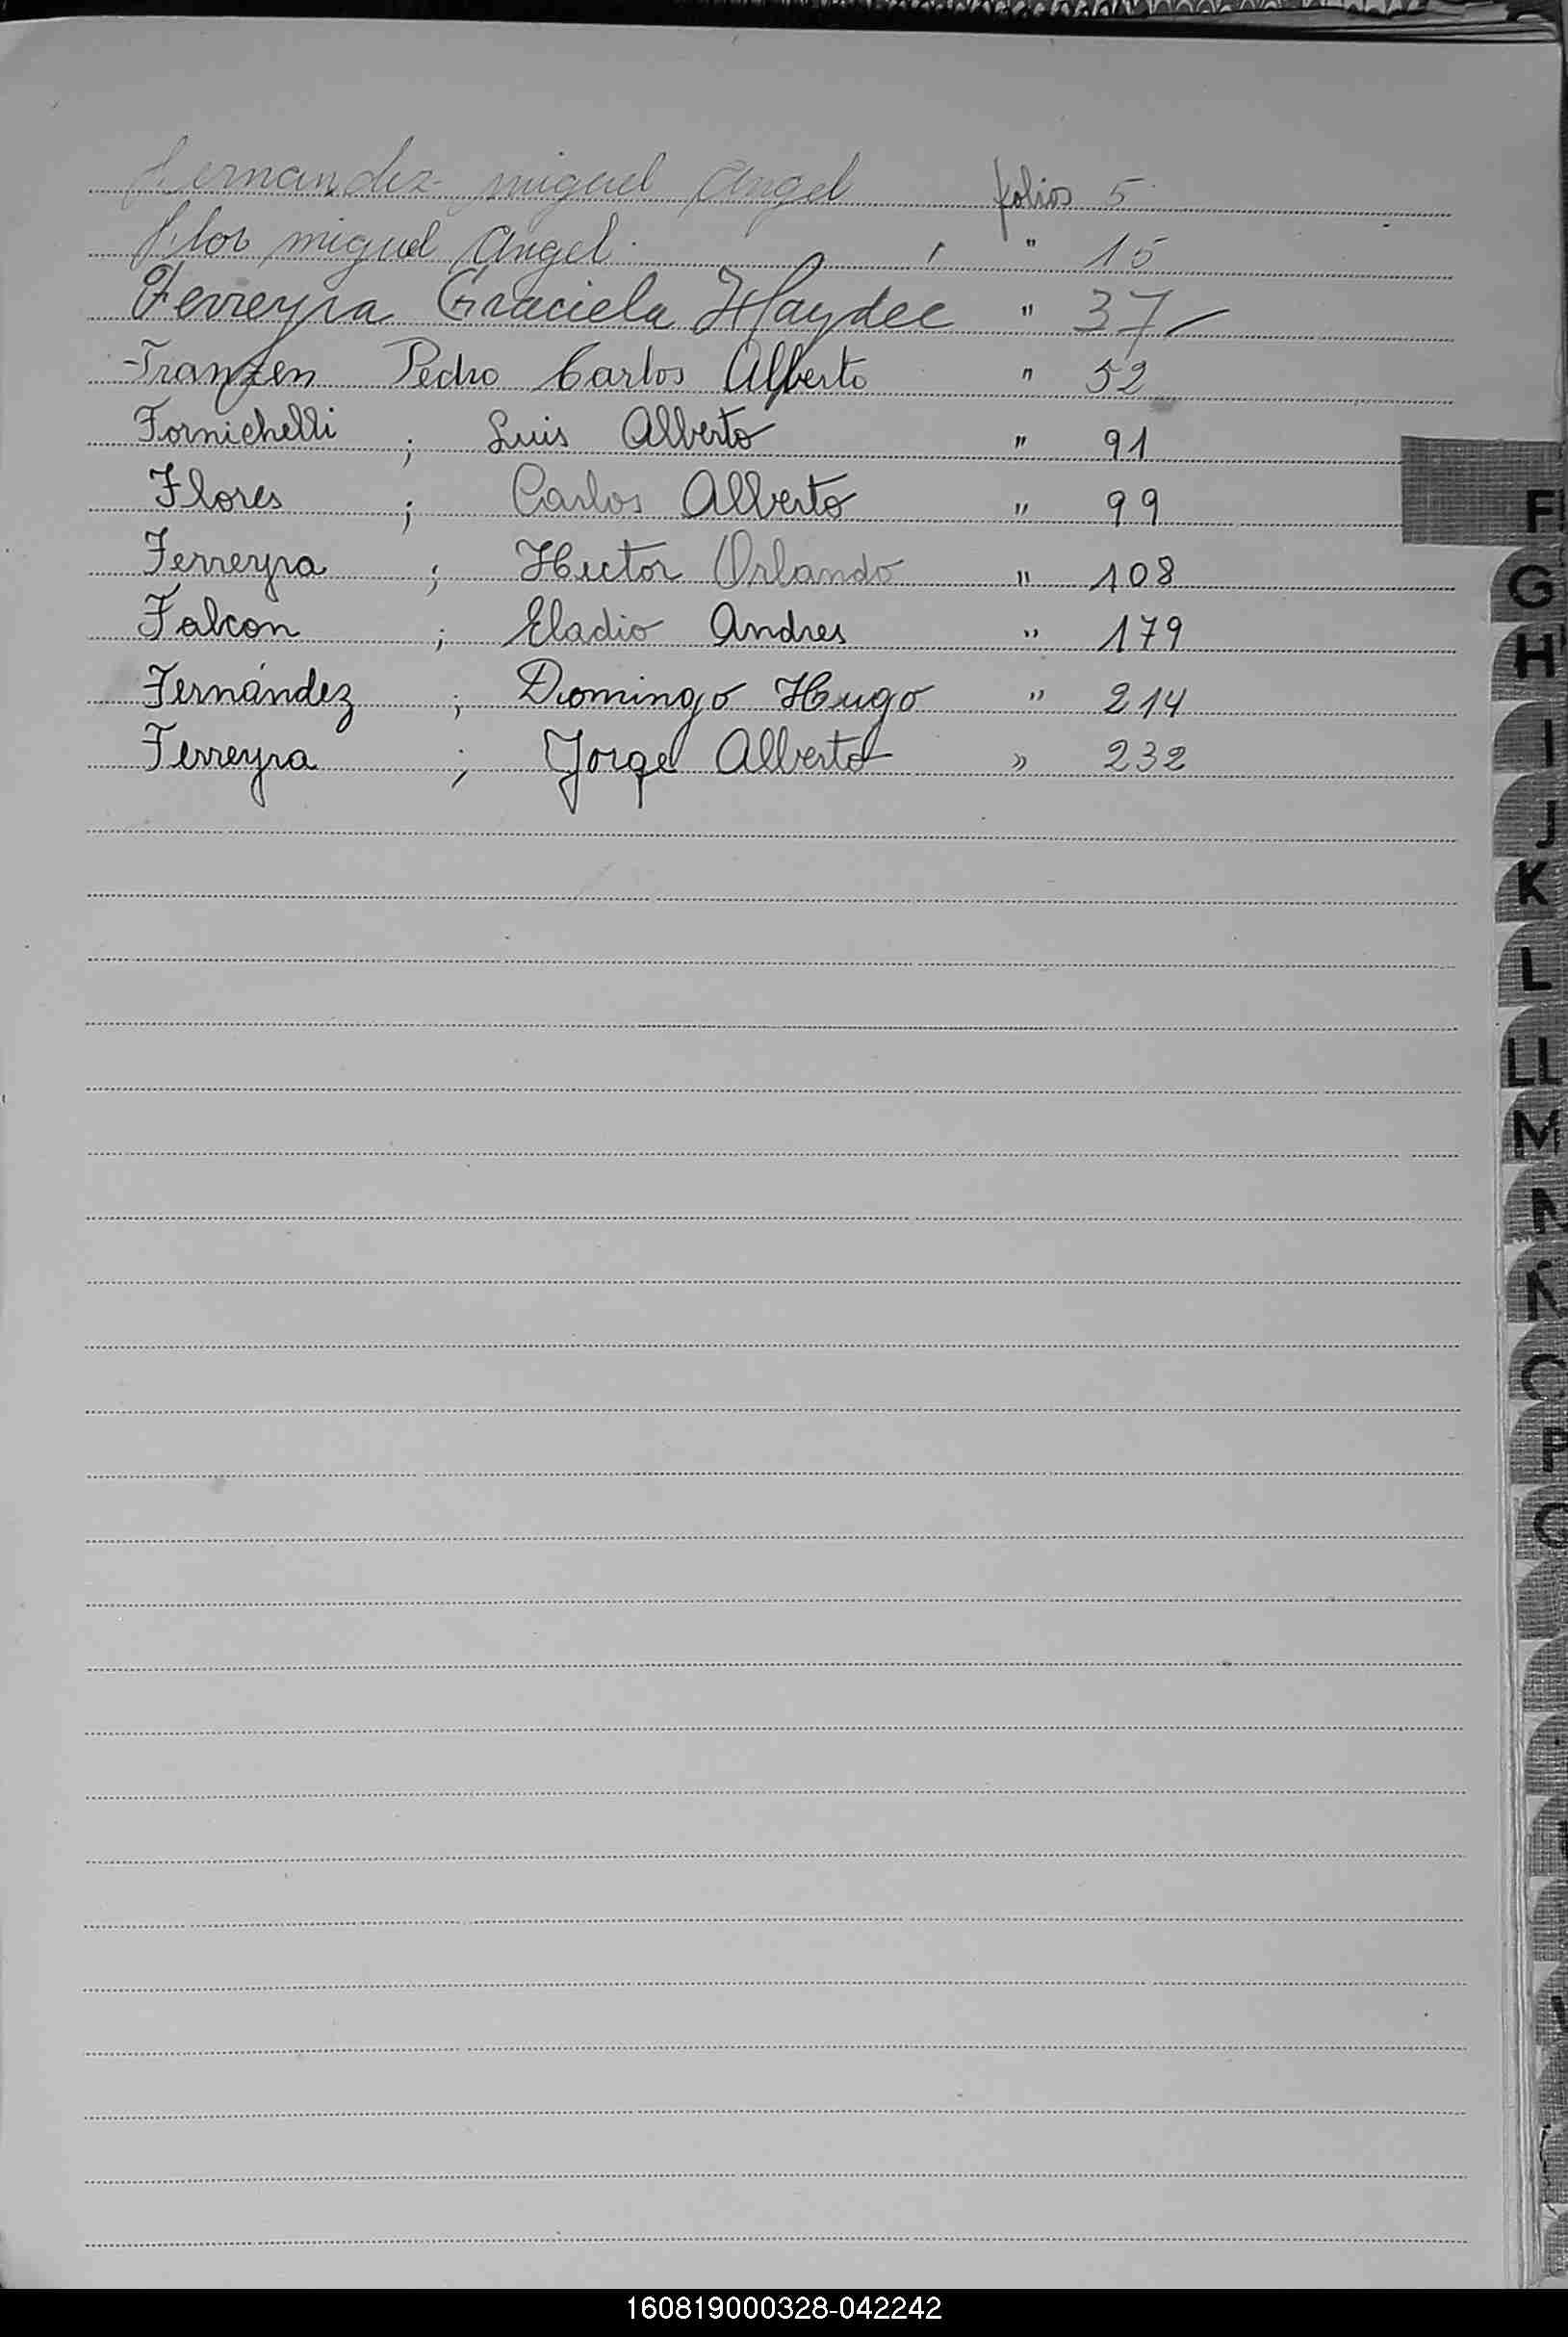 Fernandez miguel Angel folios 5
Flor miguel Angel. " 15
Ferreyra Graciela Haydee " 37
Franzen Pedro Carlos Alberto " 52
Fornichelli ; Luis Alberto " 91
Flores ; Carlos Alberto " 99
Ferreyra ; Hector Orlando " 108
Falcon ; Eladio Andres " 179
Fernández ; Domingo Hugo " 214
Ferreyra ; Jorge Alberto " 232
F
G
H
I
J
K
L
LL
M
N
Ñ
O
P
160819000328-042242